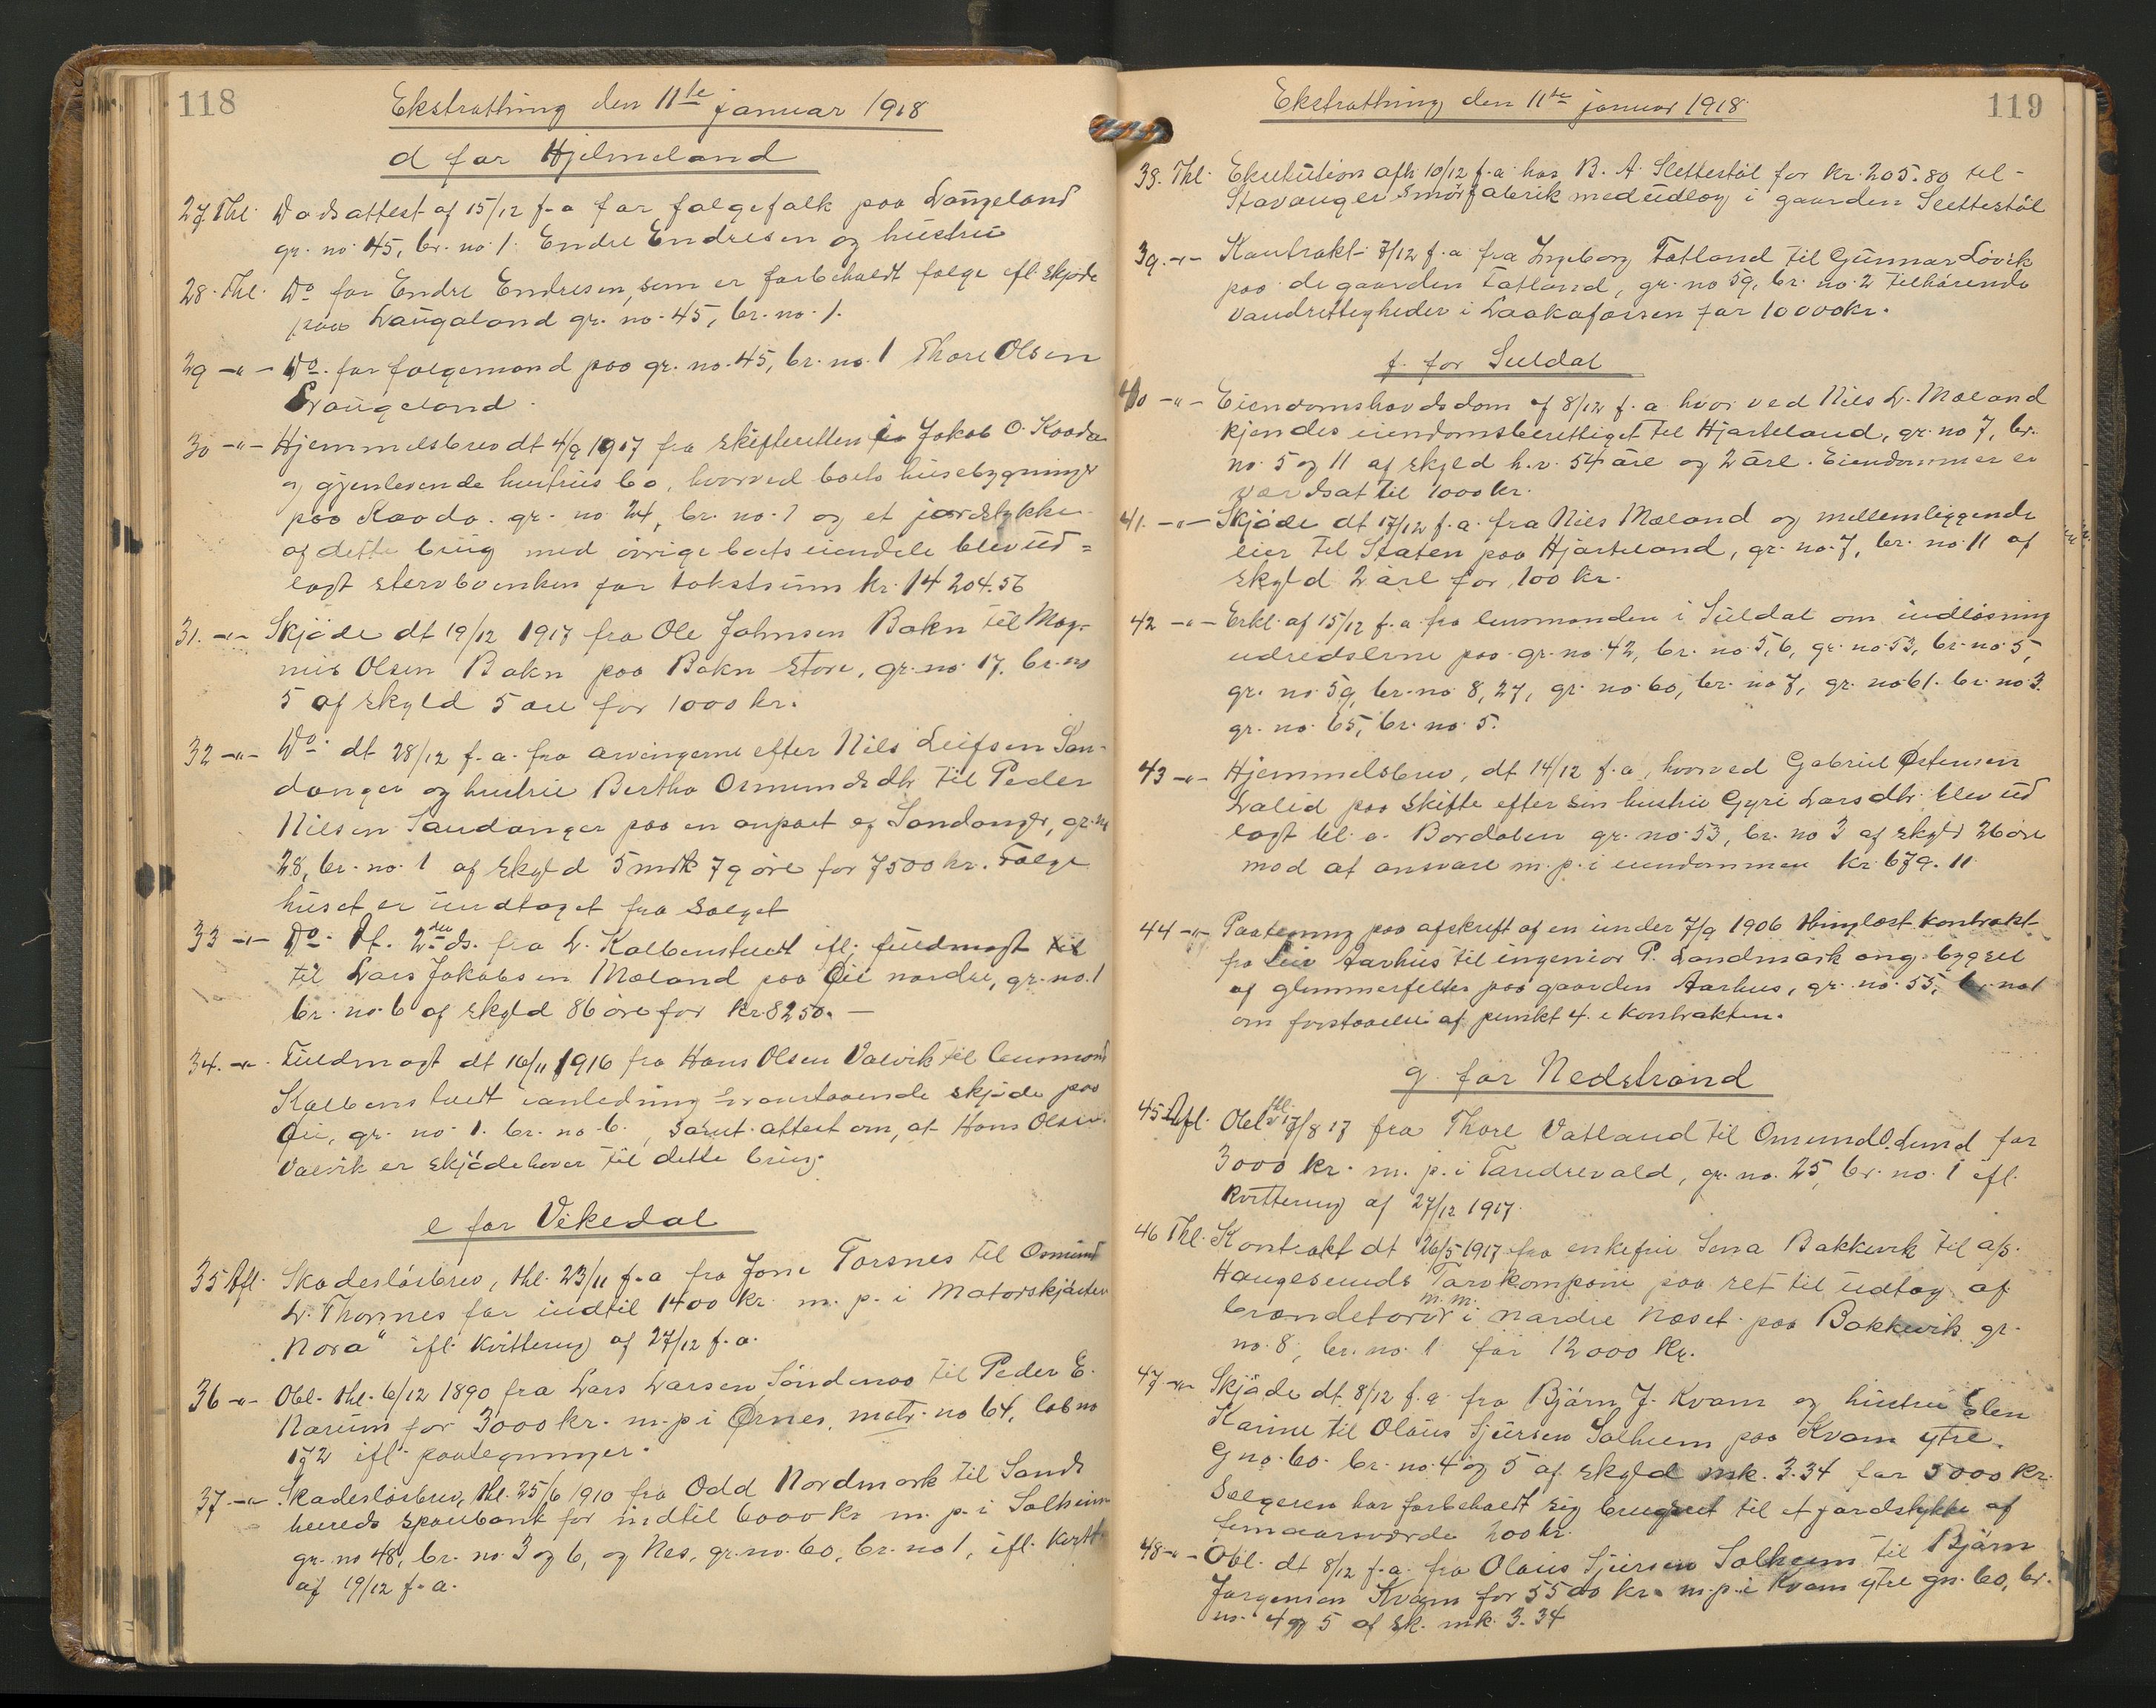 118
Ekstrathing den 11te januar 1918
d for Hjelmeland
27 Thl. Dødsattest af 15/12 f.a for følgefolk paa Laugeland
gr. no 45, br. no 1. Endre Endresen og hustru
28. Thl. Do for Endre Endresen, som er forbeholdt følge ifl. skjøde
paa Laugaland gr. no. 45, br. no. 1.
29 -"- Do. for følgemand paa gr. no. 45, br. no. 1 Thore Olsen
Laugeland.
30 -"- Hjemmelsbrev dt 4/9 1917 fra skifteretten i Jakob O. Kaada
og gjenlevende hustrus bo, hvorved boets husebygninger
paa Kaada. gr. no 24, br. no. 1 og et jordstykke
af dette brug med øvrige boets eiendele blev ud=
lagt stervboenken for takstsum kr. 14 204.56
31. -"- Skjøde dt 19/12 1917 fra Ole Johnsen Bokn til Mag-
nus Olsen Bokn paa Bokn store, gr. no. 17. br. no
5 af skyld 5 øre for 1000 kr.
32 -"- Do. dt 28/12 f.a. fra arvingerne efter Nils Leifsen San-
danger og hustru Bertha Osmundsdtr til Peder
Nilsen Sandanger paa en anpart af Sandanger, gr. no
28, br. no. 1 af skyld 5 mrk 79 øre for 7500 kr. Følge
huset er undtaget fra salget
33 -"- Do. dt. 2den ds. fra L. Kolbenstvedt ifl. fuldmagt
til Lars Jakobsen Mæland paa Øie nordre, gr. no. 1
br. no. 6 af skyld 86 øre for kr. 8250. —
34. -"- Fuldmagt dt 16/11 1916 fra Hans Olsen Valvik til lensmand
Kolbenstvedt i anledning ovenstaaende skjøde paa
Øie, gr. no 1. br. no. 6., samt attest om, at Hans Olsen
Valvik er skjødehaver til dette brug.
e for Vikedal
35 Afl. Skadesløsbrev, thl. 23/11 f.a fra Jone Torsnes til Osmund
L. Thormes for indtil 1400 kr. m. p. i Motorskjøiten
"Nora" ifl. kvittering af 27/12 f.a.
36 -"- Obl. thl. 6/12 1890 fra Lars Larsen Søndenaa til Peder E.
Narum for 3000 kr. m. p. i Ørnes, matr. no 64, løb no
172 ifl. paategninger.
37 -"- Skadesløsbrev, thl. 25/6 1910 fra Odd Nordmark til Sands
herreds sparebank for indtil 6000 kr m. p. i Solheim
gr. no 48, br. no. 3 og 6, og Nes, gr. no. 60, br. no 1, ifl. kvitt
af 19/12 f.a.
119
Ekstrathing den 11te januar 1918
38. Thl. Ekekution afh 10/12 f.a. hos B. A. Slettestøl for kr. 205.80 til
Stavanger smørfabrik med udlæg i gaarden Slettestøl
39. -"- Kontrakt 7/12 f.a fra Ingeborg Fatland til Gunnar Løvik
paa de gaarden Fatland, gr. no 59, br. no. 2 tilhørende
vandrettigheder i Laakafossen for 10000 kr.
f. for Suldal
40 -"- Eiendomshævdsdom af 8/12 f.a. hvorved Nils L. Mæland
kjendes eiendomsberettiget til Hjorteland, gr. no 7, br.
no. 5 og 11 af skyld h.v. 54 øre og 2 øre. Eiendommen er
værdsat til 1000 kr.
41. -"- Skjøde dt 17/12 f.a. fra Nils Mæland og mellemliggende
eier til Staten paa Hjorteland, gr. no. 7, br. no. 11 af
skyld 2 øre for 100 kr.
42 -"- Erkl. af 15/12 f.a. fra lensmanden i Suldal om indløsning
udredslerne paa gr. no. 42, br. no. 5, 6, gr. no 53, br. no 5,
gr. no 59, br. no 8, 27, gr. no. 60, br. no 7, gr. no 61. br. no 3.
gr. no. 65, br. no. 5.
43 -"- Hjemmelsbrev, dt 14/12 f.a, hvorved Gabriel Østensen
Lalid paa skifte efter sin hustru Gyri Larsdtr. blev ud
lagt bl. a. Bordalen gr. no 53, br. no 3 af skyld 26 øre
mod at ansvare m. p. i eiendommen kr. 679.11
44 -"- Paategning paa afskrift af en under 7/9 1906 thinglæst kontrakt
fra Aarhus til ingeniør P. Landmark ang. bygsel
af glimmerfelter paa gaarden Aarhus, gr. no. 55, br. no 1
om forstaaelse af punkt 4. i kontrakten.
g. for Nedstrand
45 Afl. Obl. thl. 17/8 17 fra Thore Vatland til Omund O. Lund for
3000 kr. m. p. i Tandrevald, gr. no. 25, br. no. 1 ifl.
kvittering af 27/12 1917.
46 Thl. Kontrakt dt 26/5 1917 fra enkefru Sena Bakkevik til a/s.
Haugesunds Torvkompani paa ret til udtag af
brændetorv m.m. i nordre Næset paa Bakkevik gr.
no. 8, br. no. 1 for 12000 kr.
47 -"- Skjøde dt. 8/12 f.a fra Bjørn J. Kvam og hustru Elen
Karine til Olaus Sjursen Solheim paa Kvam ytre.
G no. 60. br. no. 4 og 5 af skyld mk. 3.34 for 5000 kr.
Sælgeren har forbeholdt sig brugsret til et jordstykke af
femaarsværde 200 kr.
48 -"- Obl. dt 8/12 f.a. fra Olaus Sjursen Solheim til Bjørn
Jørgensen Kvam for 5500 kr. m. p. i Kvam ytre gn. 60, br.
no. 4 og 5 af sk. mk. 3.34